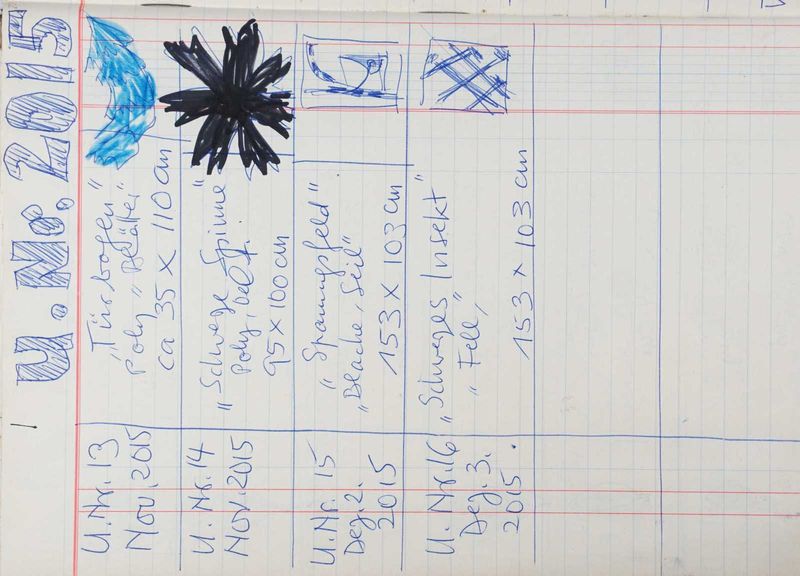 U. Nr. 2015
U. Nr. 13
Nov. 2015
"Türbogen"
Poly "Blätter"
ca 35 X 110 cm
U. Nr. 14
Nov. 2015
"Schwege Spinne"
Poly,
95 X 100 cm
U. Nr. 15
Dez. 2.
2015
"Spannungsfeld"
"Blache, Seil"
153 X 103 cm
U. Nr. 16
Dez. 3.
2015.
"Schweges Insekt"
"Fell"
153 X 103 cm